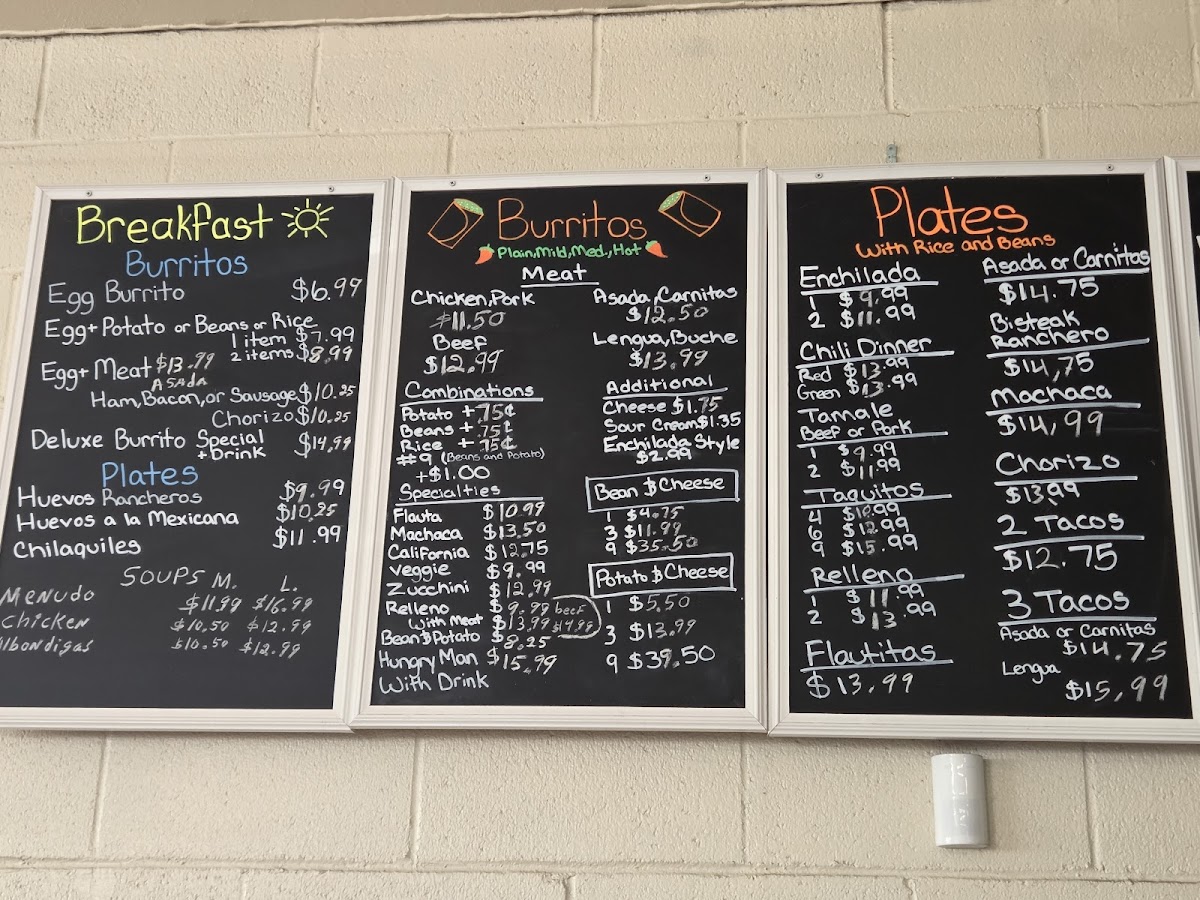 Breakfast
Burritos
Egg Burrito $6.99
Egg + Potato or Beans or Rice
1 item $7.99
2 items $8.99
Egg + Meat $13.99
ASADA
Ham, Bacon, or Sausage $10.25
Chorizo $10.25
Deluxe Burrito Special $14.99
+ Drink
Plates
Huevos Rancheros $9.99
Huevos a la Mexicana $10.25
Chilaquiles $11.99
SOUPS M. L.
Menudo $11.99 $16.99
Chicken $10.50 $12.99
Albondigas $10.50 $12.99
Burritos
Plain, Mild, Med., Hot
Meat
Chicken, Pork
$11.50
Beef
$12.99
Asada, Carnitas
$12.50
Lengua, Buche
$13.99
Combinations
Potato + .75¢
Beans + .75¢
Rice + .75¢
#9 (Beans and Potato)
+ $1.00
Additional
Cheese $1.75
Sour Cream $1.35
Enchilada Style
$2.99
Specialties
Flauta $10.99
Machaca $13.50
California $12.75
Veggie $9.99
Zucchini $12.99
Relleno $9.99 beef
With Meat $13.99 $14.99
Bean $ Potato $8.25
Hungry Man $15.99
With Drink
Bean $ Cheese
1 $4.75
3 $11.99
9 $35.50
Potato $ Cheese
1 $5.50
3 $13.99
9 $39.50
Plates
With Rice and Beans
Enchilada
1 $9.99
2 $11.99
Chili Dinner
Red $13.99
Green $13.99
Tamale
Beef or Pork
1 $9.99
2 $11.99
Taquitos
4 $10.99
6 $12.99
9 $15.99
Relleno
1 $11.99
2 $13.99
Flautitas
$13.99
Asada or Carnitas
$14.75
Bisteak
Ranchero
$14,75
Machaca
$14,99
Chorizo
$13.99
2 Tacos
$12.75
3 Tacos
Asada or Carnitas
$14.75
Lengua
$15,99